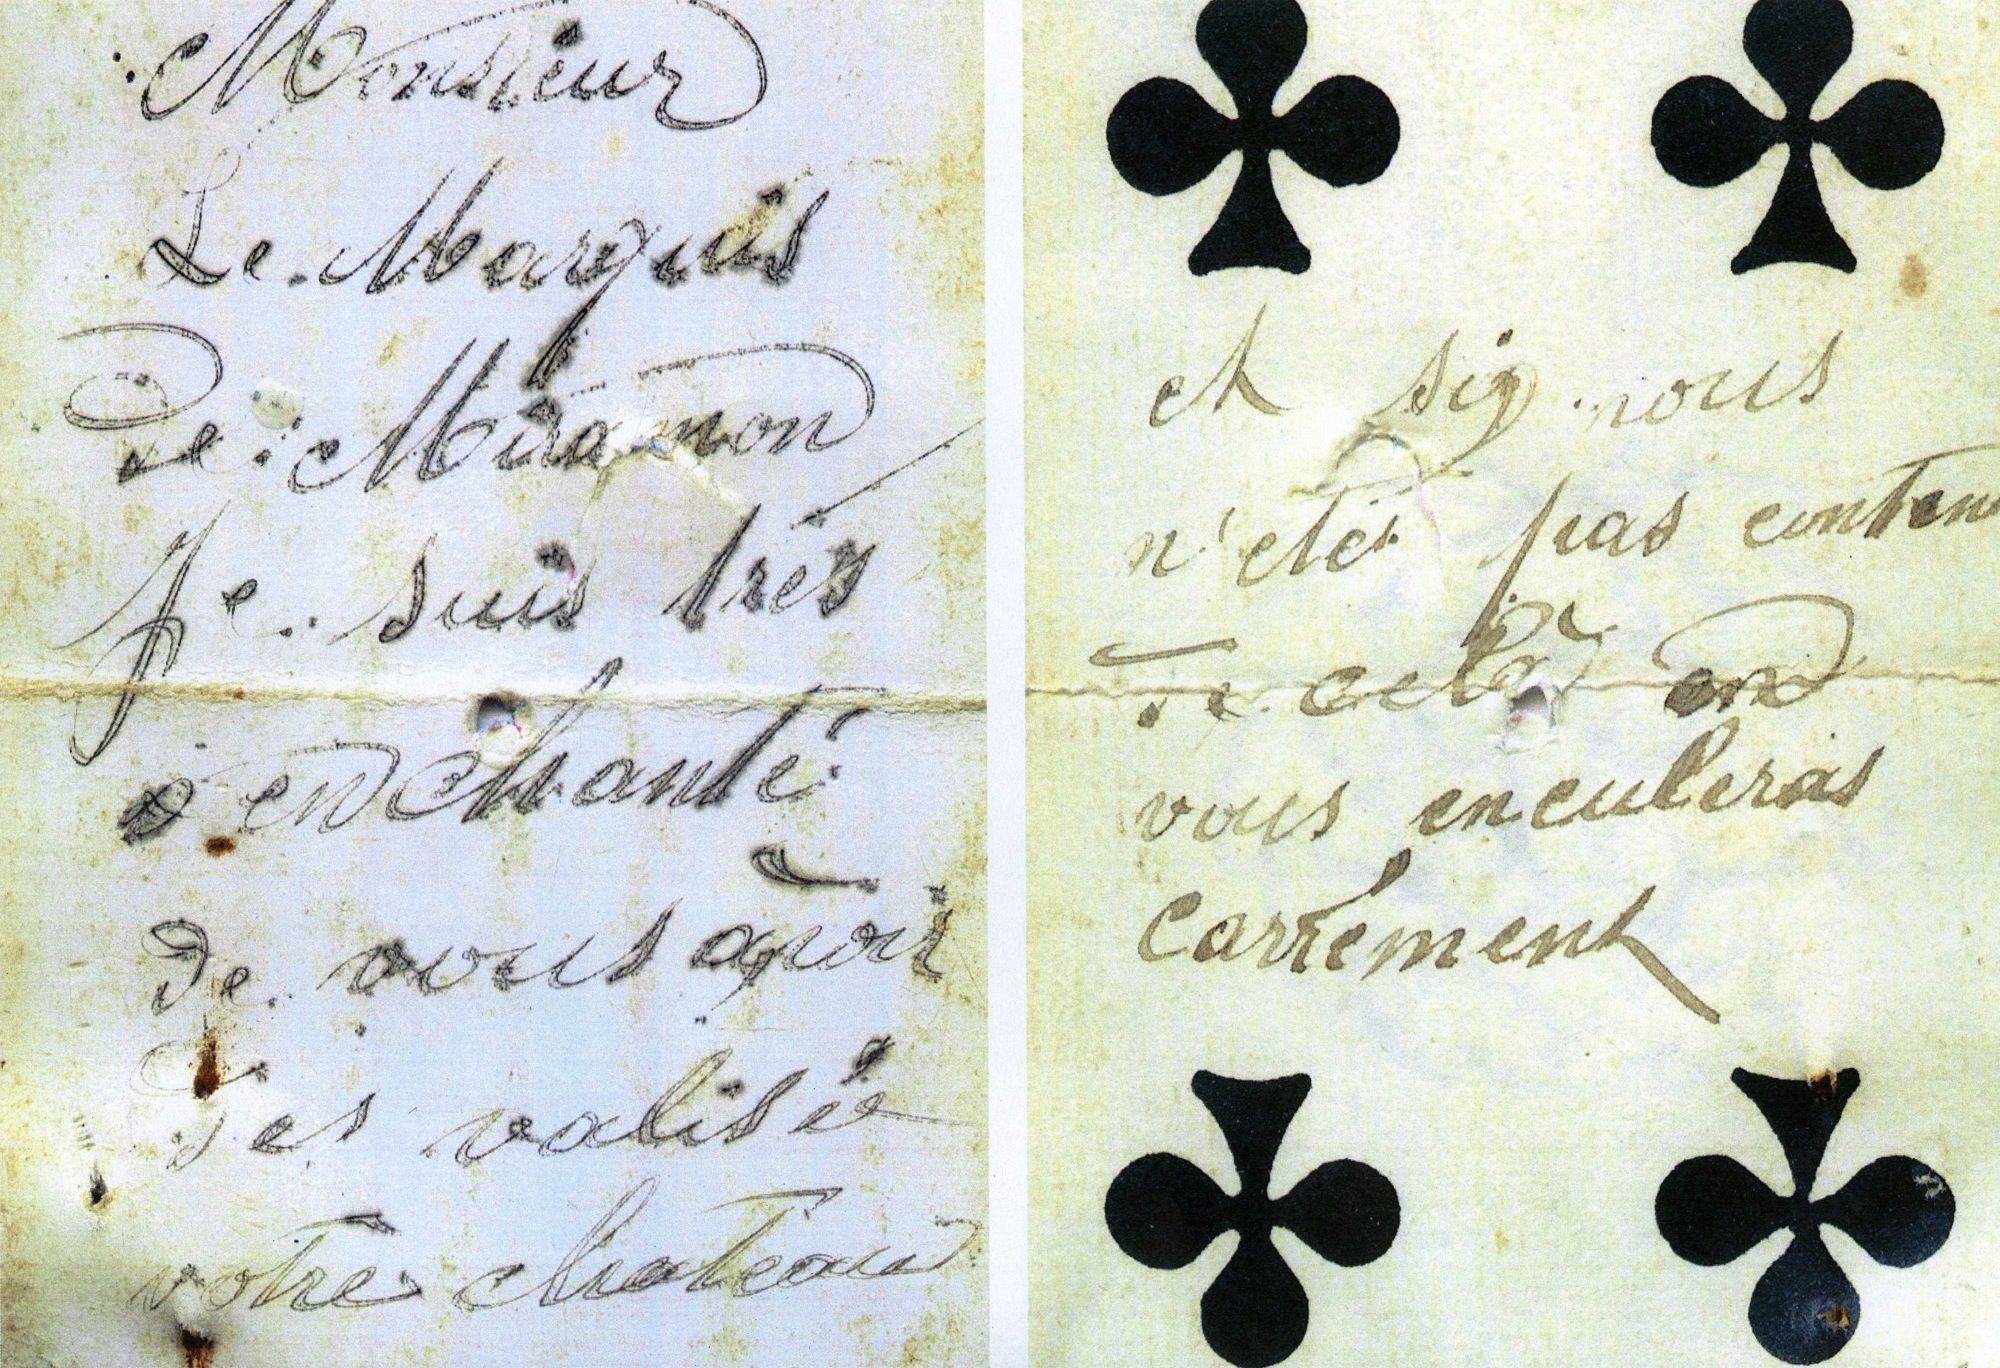 Monsieur
Le Marquis
de Miramon
Je suis très
enchanté
de vous avoir
dévalisée
votre chateau
et sig vous
n'étés pas conten
de cela on
vous enculeras
Carrément